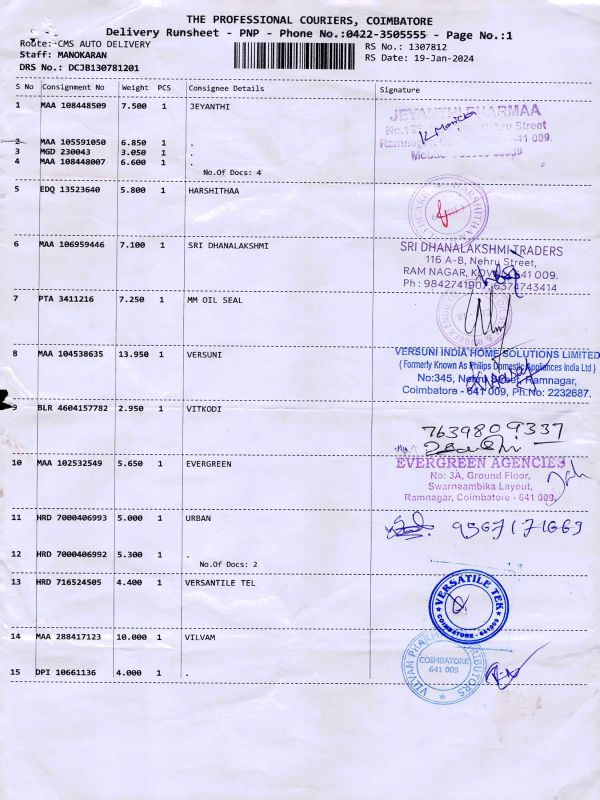 THE PROFESSIONAL COURIERS, COIMBATORE
Delivery Runsheet - PNP - Phone No.:0422-3505555 - Page No.:1
Route: CMS AUTO DELIVERY
Staff: MANOKARAN
DRS No.: DCJB130781201
RS No.: 1307812
RS Date: 19-Jan-2024
S No Consignment No Weight PCS Consignee Details Signature
1 MAA 108448509 7.500 1 JEYANTHI
2 MAA 105591050 6.850 1 .
3 MGD 230043 3.050 1 .
4 MAA 108448007 6.600 1 .
No.Of Docs: 4
5 EDQ 13523640 5.800 1 HARSHITHAA
6 MAA 106959446 7.100 1 SRI DHANALAKSHMI
SRI DHANALAKSHMI TRADERS
116 A-B, Nehru Street,
RAM NAGAR, 641 009.
Ph : 9842741907, 6374743414
7 PTA 3411216 7.250 1 MM OIL SEAL
8 MAA 104538635 13.950 1 VERSUNI
VERSUNI INDIA HOME SOLUTIONS LIMITED
( Formerly Known As Philips Domestic Appliances India Ltd )
No:345, Nehru Street, Ramnagar,
Coimbatore - 641 009, Ph.No: 2232687.
9 BLR 4604157782 2.950 1 VITKODI
7639809337
10 MAA 102532549 5.650 1 EVERGREEN
EVERGREEN AGENCIES
No: 3A, Ground Floor,
Swarnaambika Layout,
Ramnagar, Coimbatore - 641 009.
11 HRD 7000406993 5.000 1 URBAN
9567171663
12 HRD 7000406992 5.300 1 .
No.Of Docs: 2
13 HRD 716524505 4.400 1 VERSANTILE TEL
VERSATILE TEK
COIMBATORE - 641009
14 MAA 288417123 10.000 1 VILVAM
COIMBATORE
641 009
15 DPI 10661136 4.000 1 .